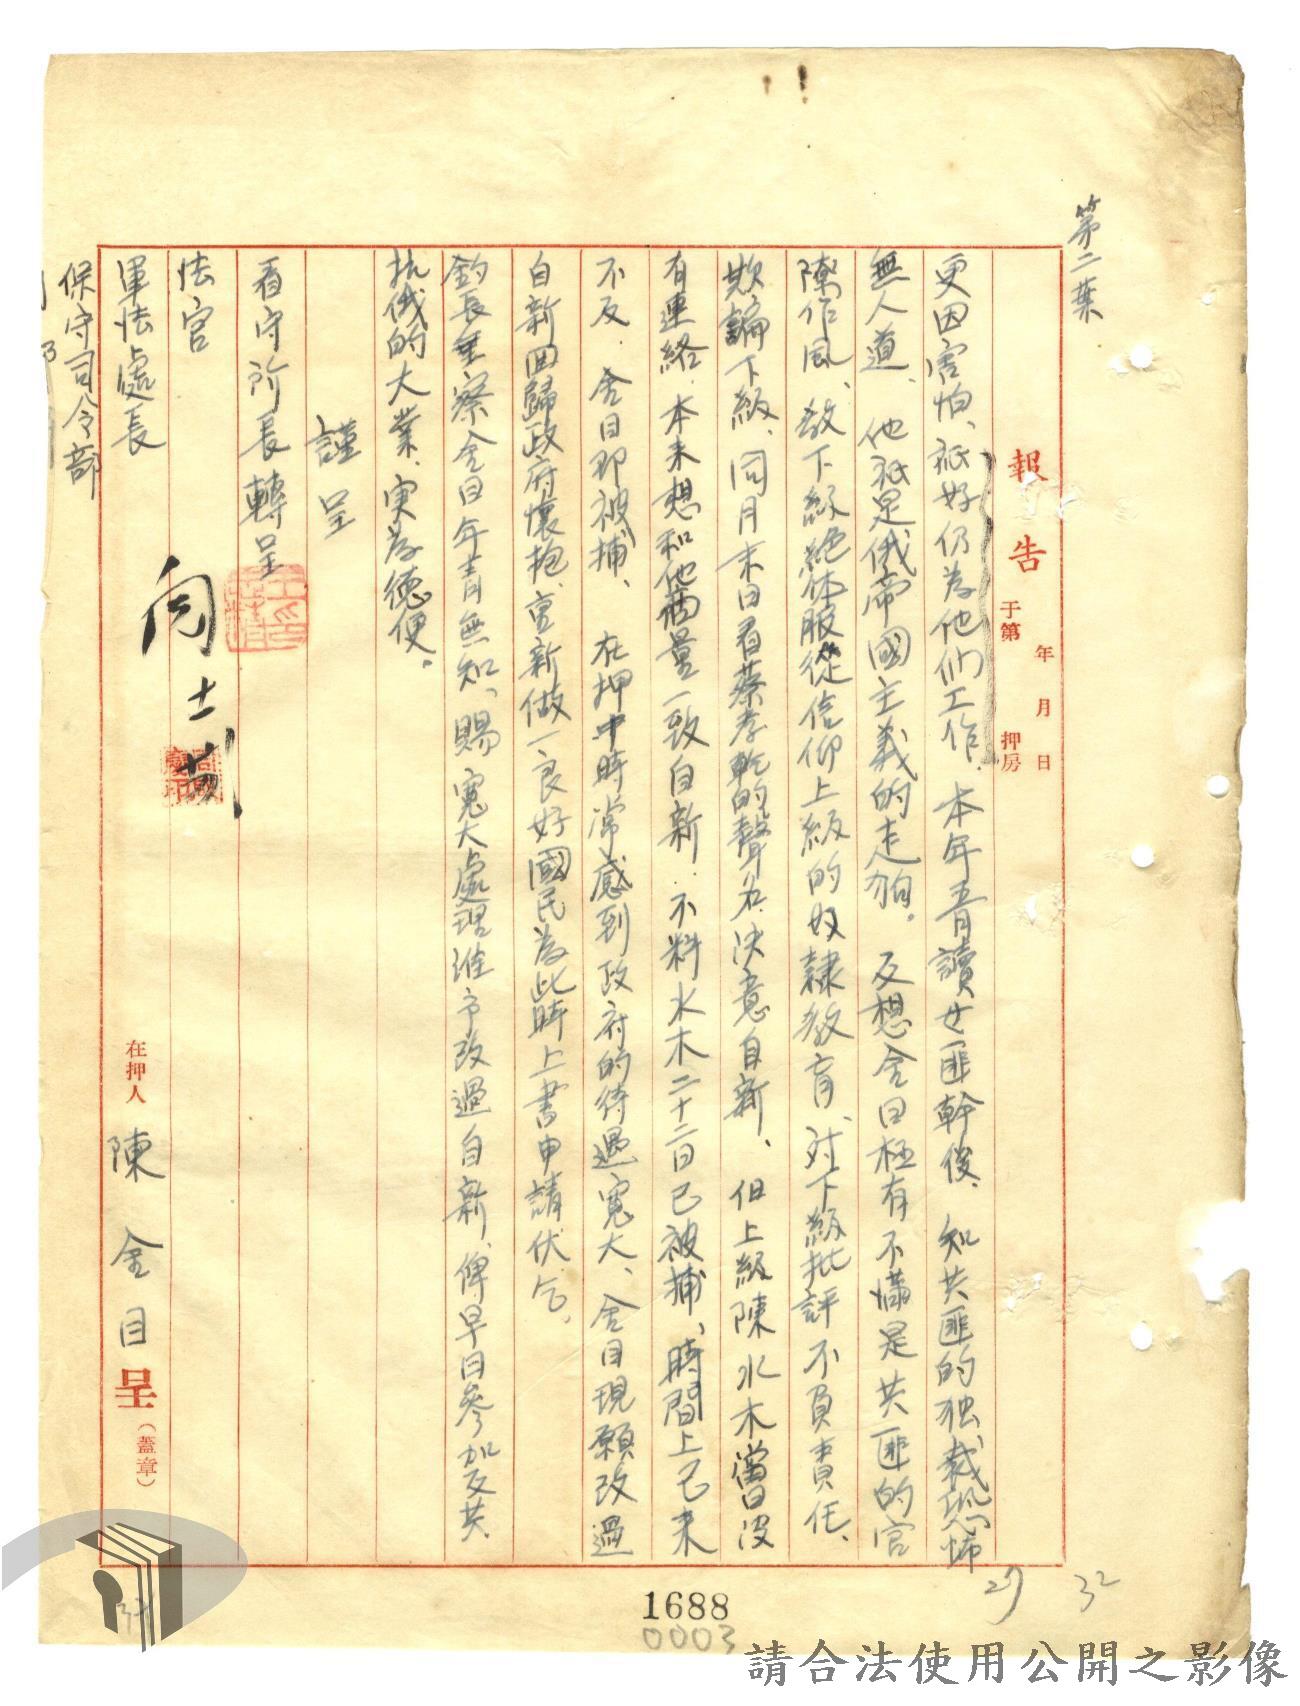 第二葉
報告
年 月 日
于第 押房
更因害怕、祇好仍為他们工作、本年青讀廿匪幹後、知共匪的独裁恐怖
無人道、他祇是俄帝國主義的走狗。反想金目極有不懂是共匪的官
隙作風、教下級絕体服從信仰上級的奴隸教育、对下級批評不負責任、
欺騙下級、同月末日看蔡孝乾的聲名、決意自新、但上級陳水木曾日没
有連絡、本来想和他商量一致自新、不料水木二十二日已被捕、時間上已来
不及、金目即被捕、在押中時常感到政府的待遇寬大、金目現願改過
自新回歸政府懷抱、重新做一良好國民為此時上書申請伏乞、
鈞長垂察金目年青無知、賜寬大處理准予改過自新、俾早日參加反共
抗俄的大業、実為德便。
謹呈
看守所長轉呈
法官
軍法處長
保守司令部
在押人 陳金目 呈（蓋章）
27
32
37
1688
0003
請合法使用公開之影像